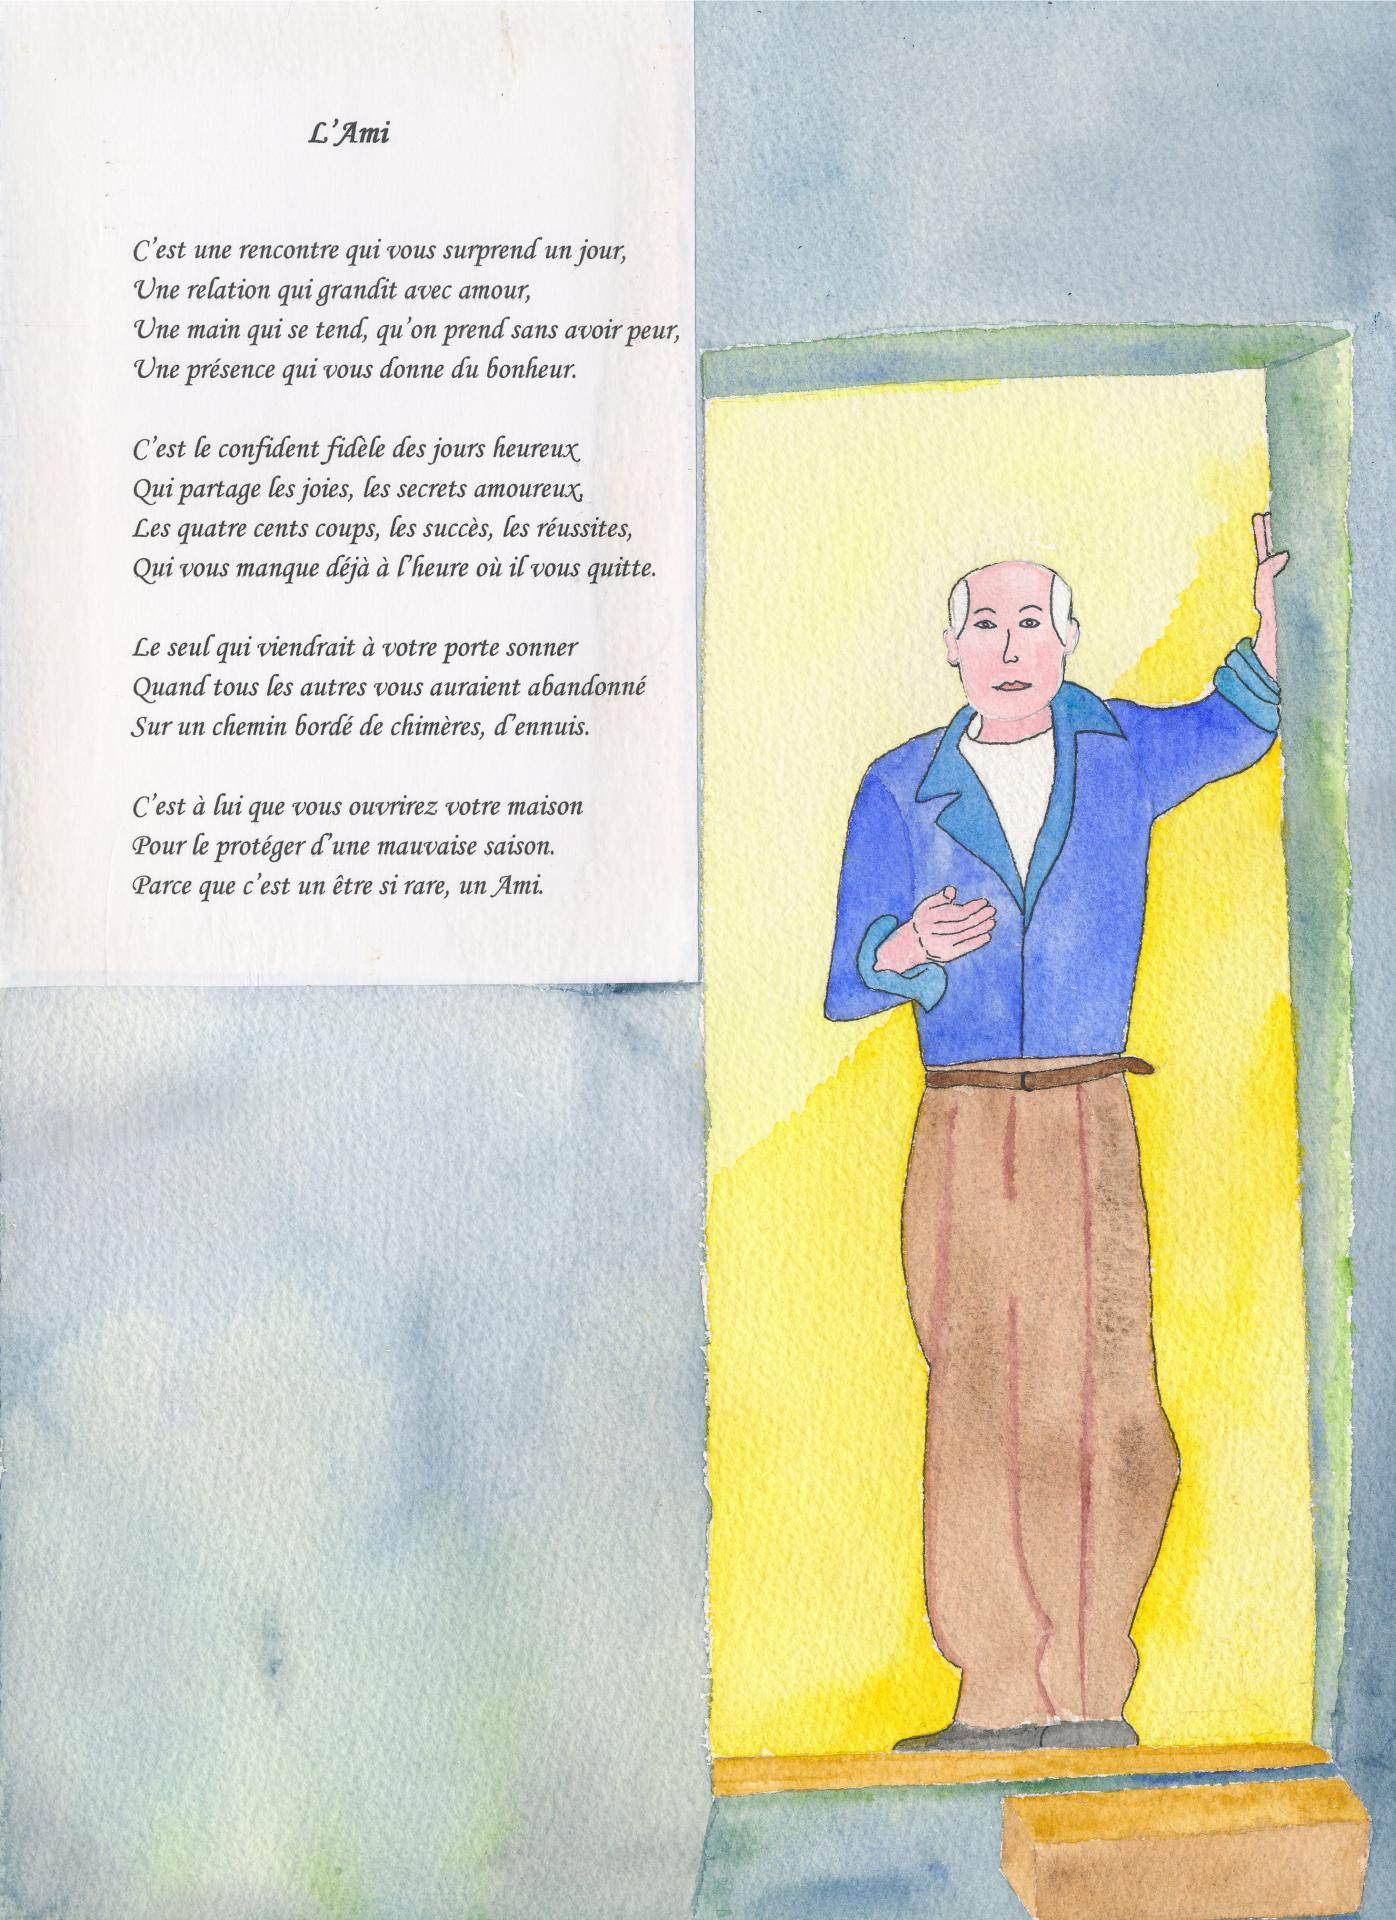 L'Ami
C'est une rencontre qui vous surprend un jour,
Une relation qui grandit avec amour,
Une main qui se tend, qu'on prend sans avoir peur,
Une présence qui vous donne du bonheur.
C'est le confident fidèle des jours heureux
Qui partage les joies, les secrets amoureux,
Les quatre cents coups, les succès, les réussites,
Qui vous manque déjà à l'heure où il vous quitte.
Le seul qui viendrait à votre porte sonner
Quand tous les autres vous auraient abandonné
Sur un chemin bordé de chimères, d'ennuis.
C'est à lui que vous ouvrirez votre maison
Pour le protéger d'une mauvaise saison.
Parce que c'est un être si rare, un Ami.